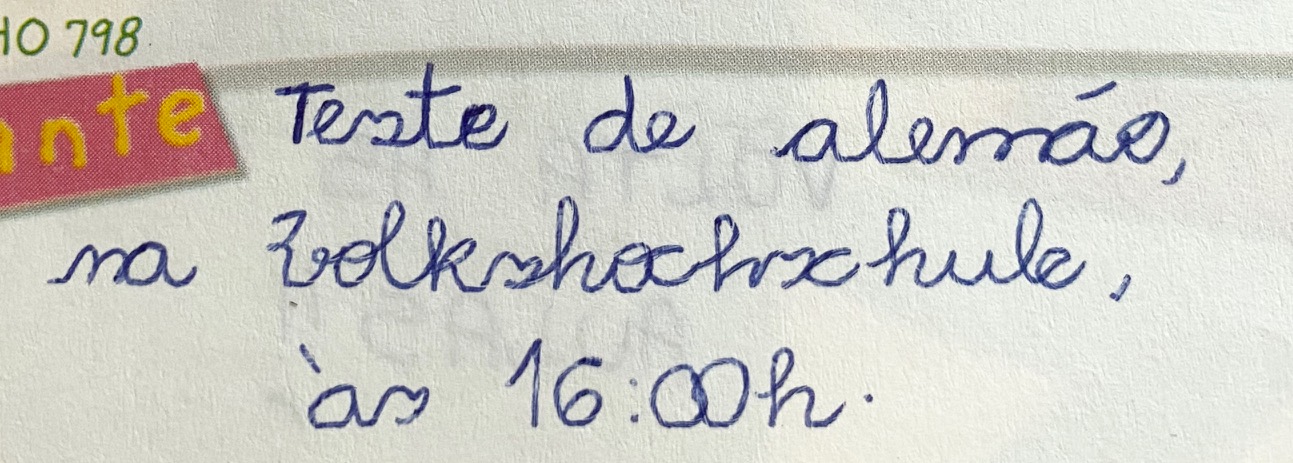 10 798
ante Teste de alemão,
na Volkshochschule,
às 16:00h.